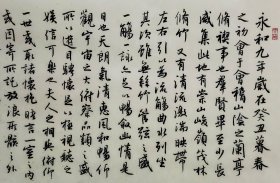 永和九年歲在癸丑暮春
之初會于會稽山陰之蘭亭
脩禊事也群賢畢至少長
咸集此地有崇山峻嶺茂林
脩竹又有清流激湍映帶
左右引以為流觴曲水列坐
其次雖無絲竹管弦之盛
一觴一詠亦足以暢敘幽情是
日也天朗氣清惠風和暢仰
觀宇宙之大俯察品類之盛
所以遊目騁懷足以極視聽之
娛信可樂也夫人之相與俯仰
一世或取諸懷抱晤言一室之內
或因寄所託放浪形骸之外